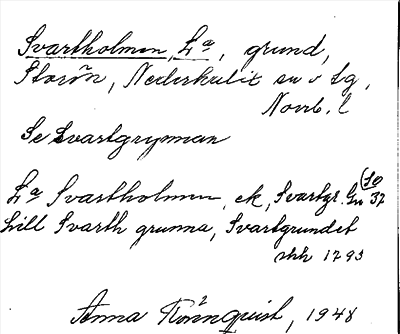 Svartholmen, L:a, grund,
Storön, Nederkalix sn o lg,
Norrb. l
Se Svartgrynnan
L:a Svartholmen, ek, Svartgr. (10 37
Lill Svarth grunna, Svartgrundet
shh 1795
Anna Rönnquist, 1948